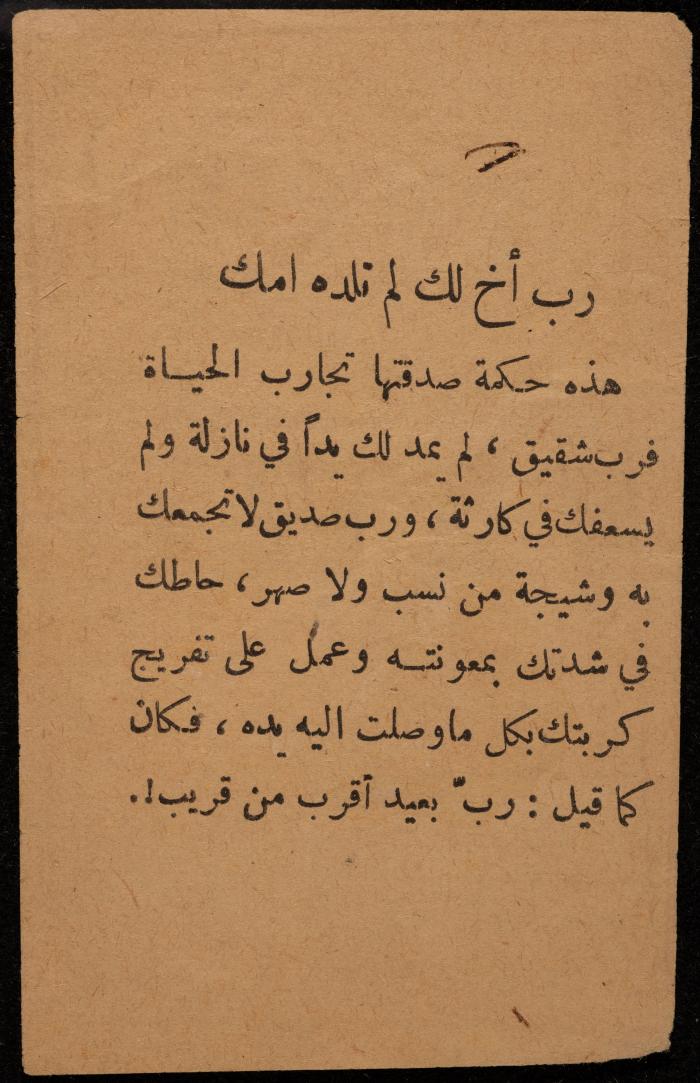 رب أخ لك لم تلده امك
هذه حكمة صدقتها تجارب الحياة
فرب شقيق ، لم يمد لك يداً في نازلة ولم
يسعفك في كارثة ، ورب صديق لا تجمعك
به وشيجة من نسب ولا صهر ، حاطك
في شدتك بمعونته وعمل على تفريج
كربتك بكل ما وصلت اليه يده ، فكان
كما قيل : ربّ بعيد أقرب من قريب !.